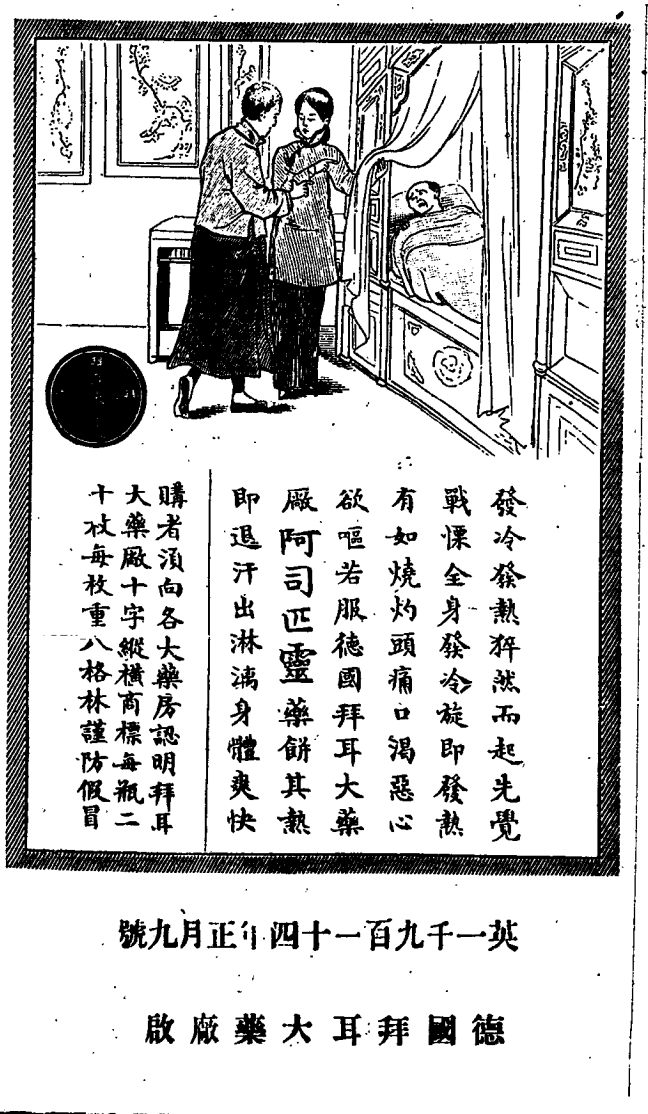 發冷發熱猝然而起先覺
戰慄全身發冷旋即發熱
有如燒灼頭痛口渴惡心
欲嘔若服德國拜耳大藥
廠阿司匹靈藥餅其熱
即退汗出淋漓身體爽快
購者須向各大藥房認明拜耳
大藥廠十字縱橫商標每瓶二
十枚每枚重八格林謹防假冒
英一千九百一十四年正月九號
德國拜耳大藥廠啟